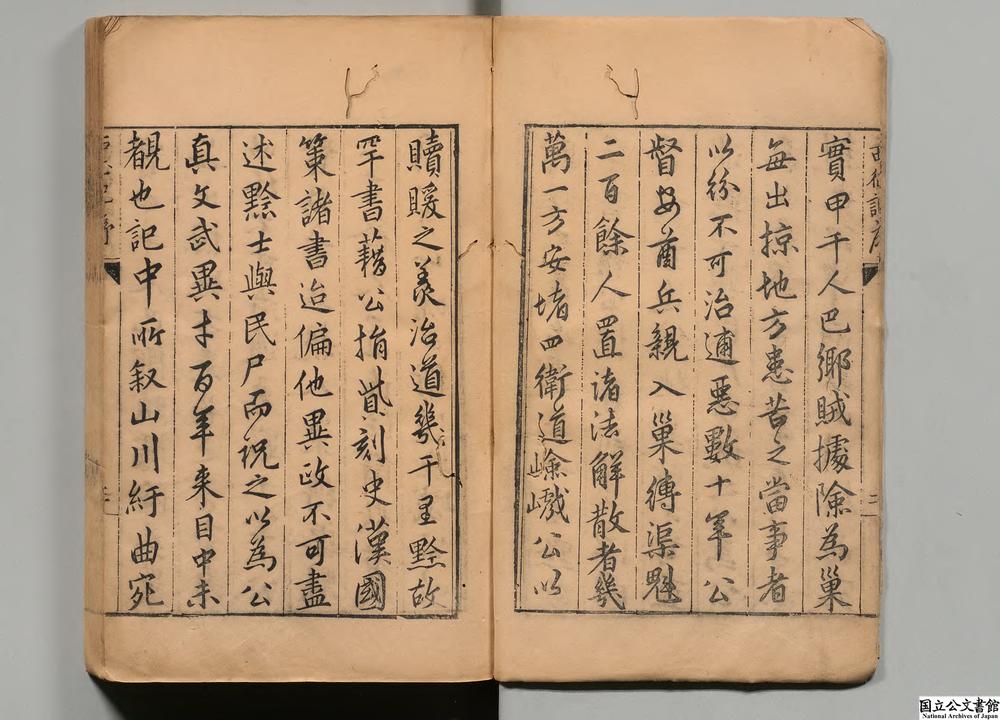 實甲千人巴鄉賊據險為巢
每出掠地方患苦之當事者
以紛不可治逋惡數十年公
督安酋兵親入巢縳渠魁
二百餘人置諸法解散者幾
萬一方安堵四衛道嶮巇公以
贖鍰之羨治道幾千里黔故
罕書藉公捐貲刻史漢國
策諸書迨徧他異政不可盡
述黔士與民尸而祝之以為公
真文武異才百年来目中未
覩也記中所叙山川紆曲宛
二
国立公文書館
National Archives of Japan